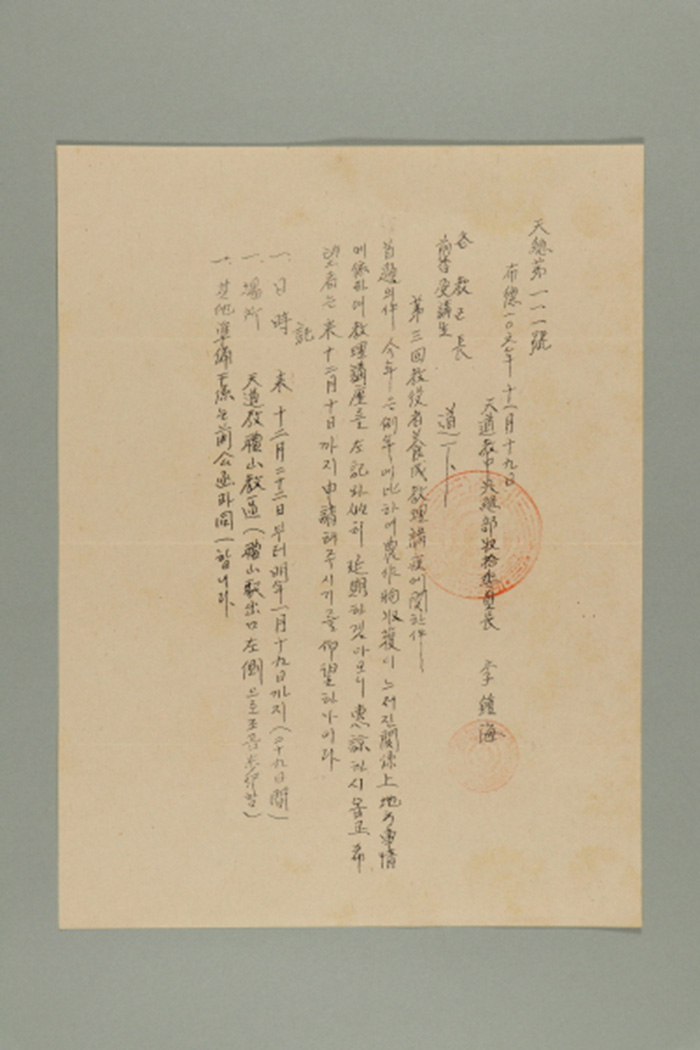 天總第一一一號
布德一〇五年 十一月十九日
天道敎中央總部收拾委員長 李鍾海
各 敎區長
前 受講生
道一卜
第三回敎役者養成敎理講座에關한件
首題의件 今年은例年에比하여農作物收穫이느서진關係上地方事情
에依하여敎理講座를左記와如히延期하겠아오니惠諒하시옵고 希
望者는來十二月十日까지申請해주시기를仰望하나이다
記
一. 日時 來十二月二十二日부터明年一月十九日까지(二十九日間)
一. 場所 天道敎禮山敎區(禮山驛出口左側으로
一. 其他準備干係는前公函과同一합니다